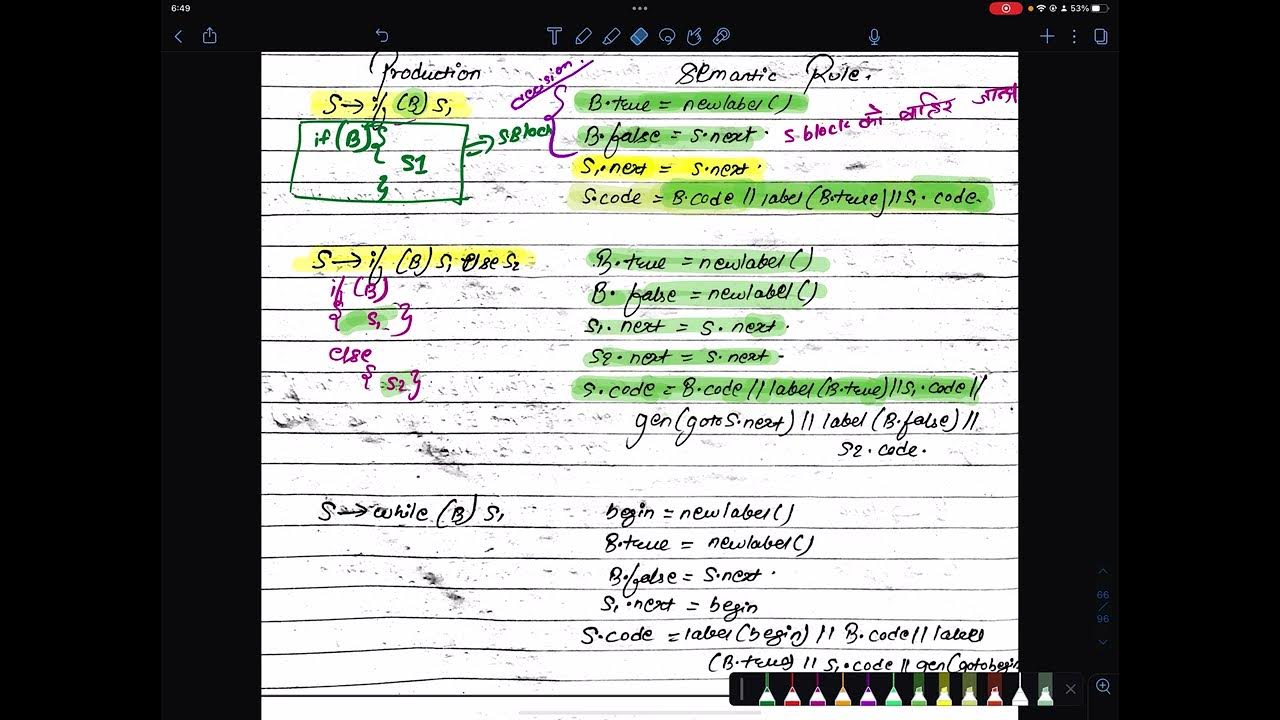 6:49
53%
Production Semantic Rule.
decision.
S → if (B) S1 B.true = newlabel()
if (B) { B.false = S.next. S block को बाहिर
S1 ⇒ S Block
} S1.next = S.next.
S.code = B.code || label(B.true) || S1.code.
S → if (B) S1 else S2 B.true = newlabel()
if (B) B.false = newlabel()
{ S1 } S1.next = S.next.
else S2.next = S.next.
{ S2 } S.code = B.code || label(B.true) || S1.code ||
gen(goto S.next) || label(B.false) ||
S2.code.
S → while (B) S1 begin = newlabel()
B.true = newlabel()
B.false = S.next.
S1.next = begin
S.code = label(begin) || B.code || label
(B.true) || S1.code || gen(goto begin
66
/
96